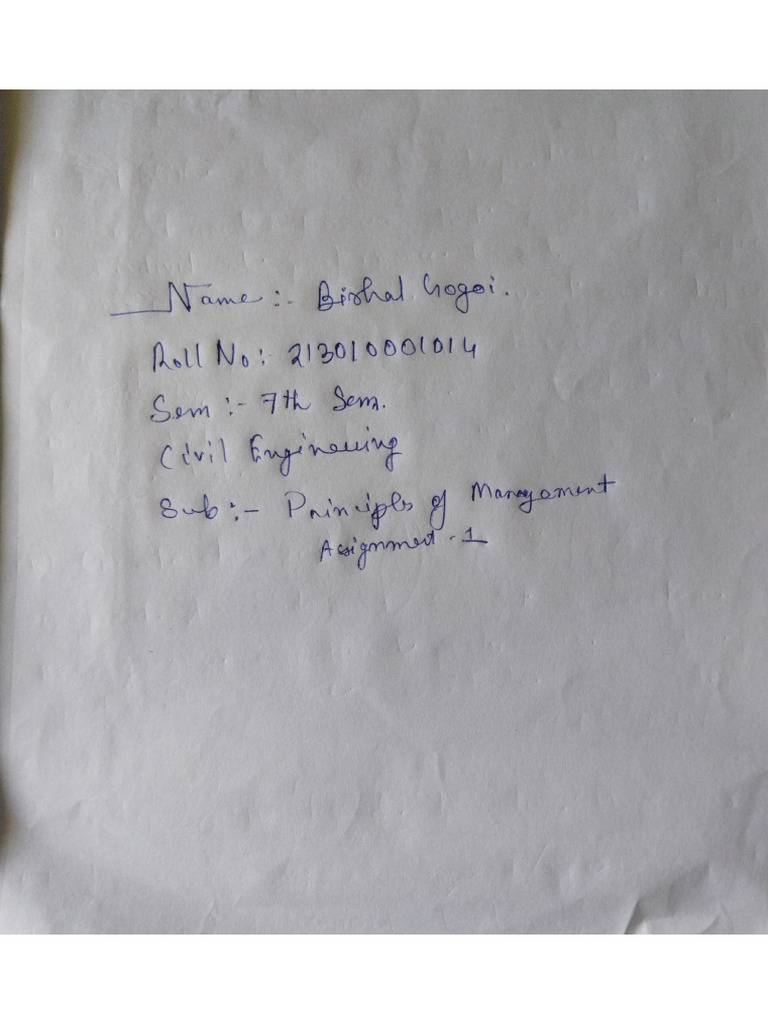 Name :- Bishal Gogoi.
Roll No :- 213010001014
Sem :- 7th Sem.
Civil Engineering
Sub :- Principles of Management
Assignment - 1